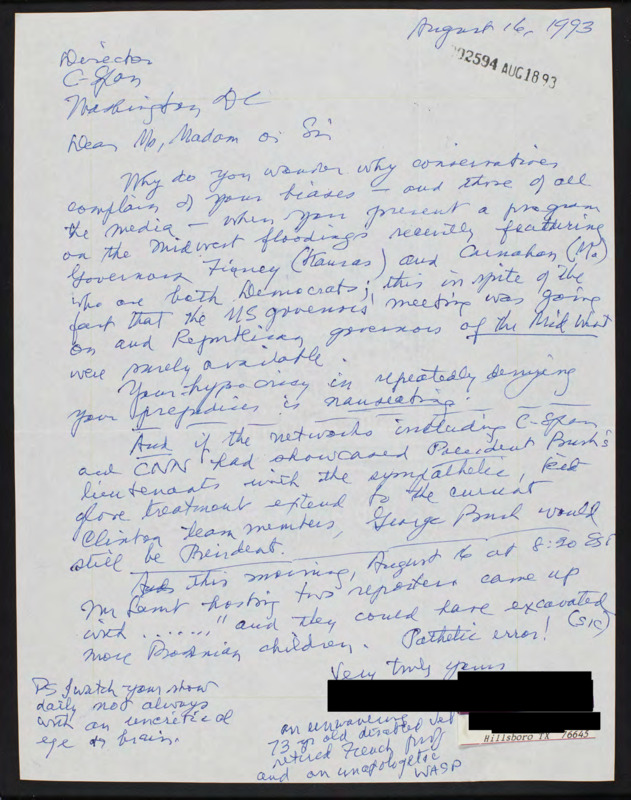 August 16, 1993
002594 AUG 18 93
Director
C-Span
Washington DC
Dear Ms, Madam or Sir
Why do you wonder why conservatives
complain of your biases — and those of all
the media — when you present a program
on the midwest floodings recently featuring
Governors Finney (Kansas) and Carnahan (Mo)
who are both Democrats; this in spite of the
fact that the US governors' meeting was going
on and Republican governors of the Mid West
were surely available.
Your hypocrisy in repeatedly denying
your prejudices is nauseating!
And if the networks including C-Span
and CNN had showcased President Bush's
lieutenants with the sympathetic, kid
glove treatment extend to the current
Clinton team members, George Bush would
still be President.
And this morning, August 16 at 8:20 EST
Mr Lamb hosting two reporters came up
with ......." and they could have excavated (sic)
more Bosnian children. Pathetic error!
Very truly yours
PS I watch your show
daily not always
with an uncritical
eye or brain.
an unwavering
73 yr old disabled vet
retired French prof
and an unapologetic
WASP
Hillsboro TX 76645